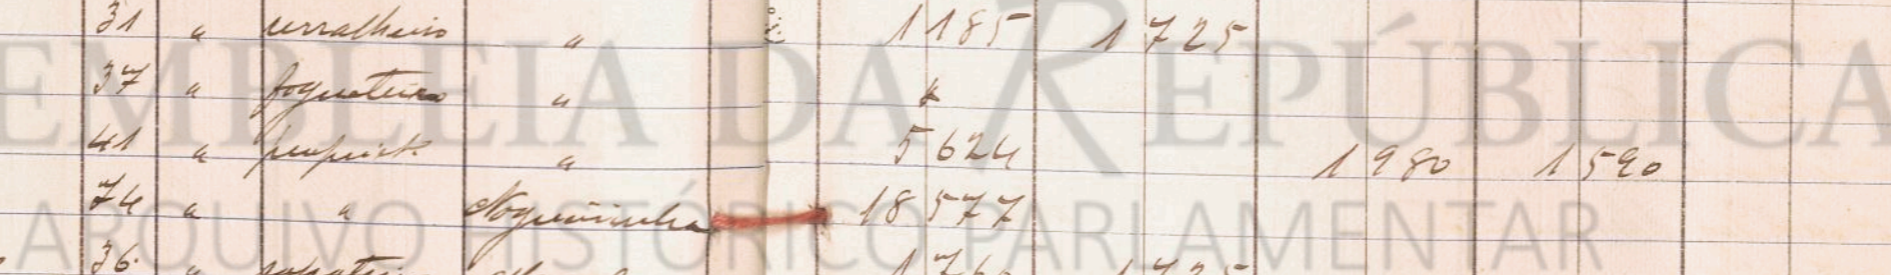 31 " serralheiro " 1185 1725
37 " fogueteiro "
41 " " 5624 1980 1590
74 " " Nogueirinha 18577
36 "
ASSEMBLEIA DA REPÚBLICA
ARQUIVO HISTÓRICO PARLAMENTAR